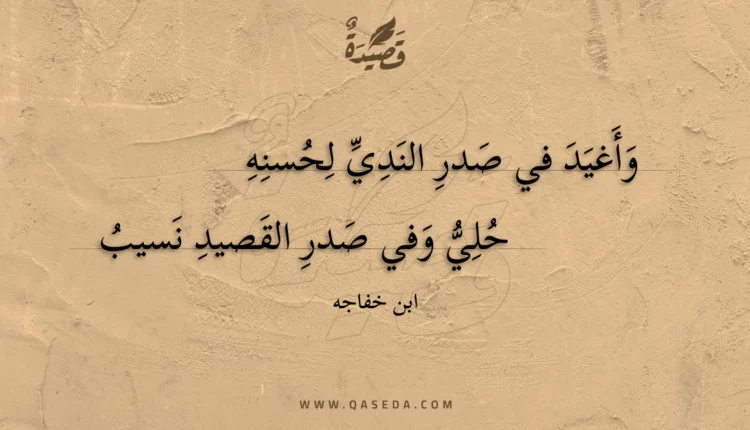 قَصِيدَةٌ
وَأَغيَدَ في صَدرِ النَدِيِّ لِحُسنِهِ
حُلِيُّ وَفي صَدرِ القَصيدِ نَسيبُ
ابن خفاجه
WWW.QASEDA.COM